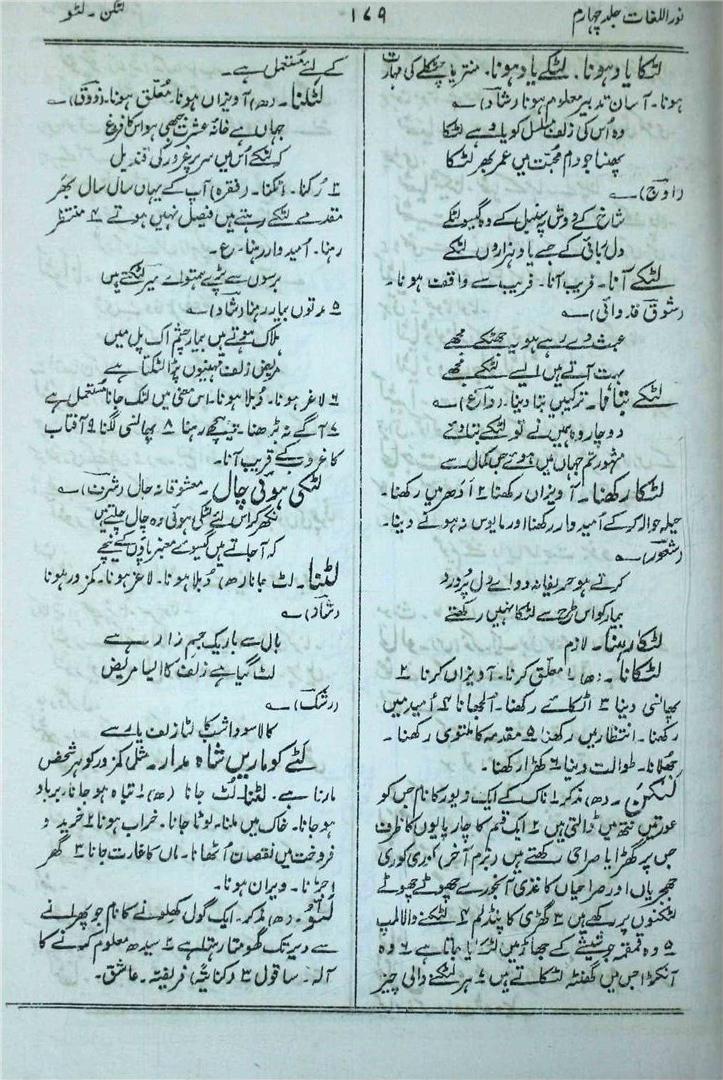 نور اللغات جلد چہارم
۱۷۹
لٹکن - لٹو
لٹکا یاد ہونا۔ لٹکے یاد ہونا۔ منتر یا چٹکلے کی مہارت
ہونا۔ آسان تدبیر معلوم ہونا (رشاد) ؎
وہ اُس کی زلف مسلسل کو یاد ہے لٹکا
پھنسا جو دام محبت میں عمر بھر لٹکا
(اوج) ؎
شاخ کے دوش پہ سنبل کے وہ گیسو لٹکے
دل رُبائی کے جسے یاد ہزاروں لٹکے
لٹکے آنا۔ فریب آنا۔ فریب سے واقف ہونا۔
(شوق قدوائی) ؎
عبث دے رہے ہو یہ جھٹکے مجھے
بہت آتے ہیں ایسے لٹکے مجھے
لٹکے بتانا۔ ترکیبیں بتا دینا۔ (داغ) ؎
دو چار وہ ہمیں نے تو لٹکے بتا دیے
مشہور تم جہاں میں ہوئے جس کمال سے
لٹکا رکھنا۔ آویزاں رکھنا ۲ اُدھر میں رکھنا۔
حیلہ حوالہ کر کے اُمیدوار رکھنا اور مایوس نہ ہونے دینا۔
(شعور) ؎
کرتے ہو حریفانہ دوا اے دل پُر درد
بیمار کو اس طرح سے لٹکا نہیں رکھتے
لٹکا رہنا۔ لازم
لٹکانا۔ (ھ) ۱ معلق کرنا۔ آویزاں کرنا ۲
پھانسی دینا ۳ اٹکائے رکھنا۔ اُلجھانا ۴ اُمید میں
رکھنا۔ انتظار میں رکھنا ۵ مقدمہ کا ملتوی رکھنا۔
جھلانا۔ طوالت دینا ۶ کھڑا رکھنا۔
لٹکن۔ (ھ) مذکر ۱ ناک کے ایک زیور کا نام جس کو
عورتیں نتھ میں ڈالتی ہیں ۲ ایک قسم کا چار پایوں کا ظرف
جس پر گھڑا یا صراحی رکھتے ہیں (بزم آخر) کوری کوری
جھجریاں اور صراحیاں کاغذی آبخورے چھوٹے چھوٹے
لٹکنوں پر رکھے ہیں ۳ گھڑی کا پنڈلم ۴ لٹکنے والا لمپ
۵ وہ قمقمہ جو شیشے کے جھاڑ میں لٹکایا جاتا ہے ۶ وہ
آنکڑا جس میں گھنٹہ لٹکاتے ہیں ۷ ہر لٹکنے والی چیز
کے لئے مستعمل ہے۔
لٹکنا۔ (ھ) آویزاں ہونا۔ معلق ہونا۔ (ذوق) ؎
جہاں ہے خانۂ عشرت سمجھی ہو اس کا فرغ
کہ لٹکے اُس میں سر پُر غرور کی قندیل
۳ رُکنا۔ اٹکنا۔ (فقرہ) آپ کے یہاں سال سال بھر
مقدمے لٹکے رہتے ہیں فیصل نہیں ہوتے ۴ منتظر
رہنا۔ اُمیدوار رہنا۔ ع۔
برسوں سے پڑے ہمتو اے میر لٹکتے ہیں
۵ مدتوں بیمار رہنا (شاد) ؎
ہلاک ہوتے ہیں بیمار چشم اک پل میں
مریض زلف مہینوں پڑا لٹکتا ہے
۶ لاغر ہونا۔ دُبلا ہونا۔ اس معنی میں لٹک جانا مستعمل ہے
۷ آگے نہ بڑھنا۔ پیچھے رہنا ۸ پھانسی لگنا ۹ آفتاب
کا غروب کے قریب آنا۔
لٹکی ہوئی چال۔ معشوقانہ چال (شرف) ؎
نکھر کر اس لئے لٹکی ہوئی وہ چال چلتے ہیں
کہ آ جاتے ہیں گیسوے معنبر پاؤں کے نیچے
لٹنا۔ لٹ جانا (ھ) دُبلا ہونا۔ لاغر ہونا۔ کمزور ہونا
(شاد) ؎
بال سے باریک جسم زار ہے
لٹ گیا ہے زلف کا ایسا مریض
(رشک) ؎
کالا سودا شبکا لٹا زلف یار سے
لٹے کو ماریں شاہ مدار۔ مثل کمزور کو ہر شخص
مارتا ہے۔ لٹنا۔ لُٹ جانا (ھ) ۱ تباہ ہو جانا۔ برباد
ہو جانا۔ خاک میں ملنا۔ لوٹا جانا۔ خراب ہونا ۲ خرید و
فروخت میں نقصان اُٹھانا۔ مال کا غارت جانا ۳ گھر
اجڑنا۔ ویران ہونا۔
لٹو۔ (ھ) مذکر۔ ایک گول کھلونے کا نام جو پھرانے
سے دیر تک گھومتا رہتا ہے ۲ سیدھ معلوم کرنے کا
آلہ۔ ساقول ۳ (کنایۃً) فریفتہ۔ عاشق۔